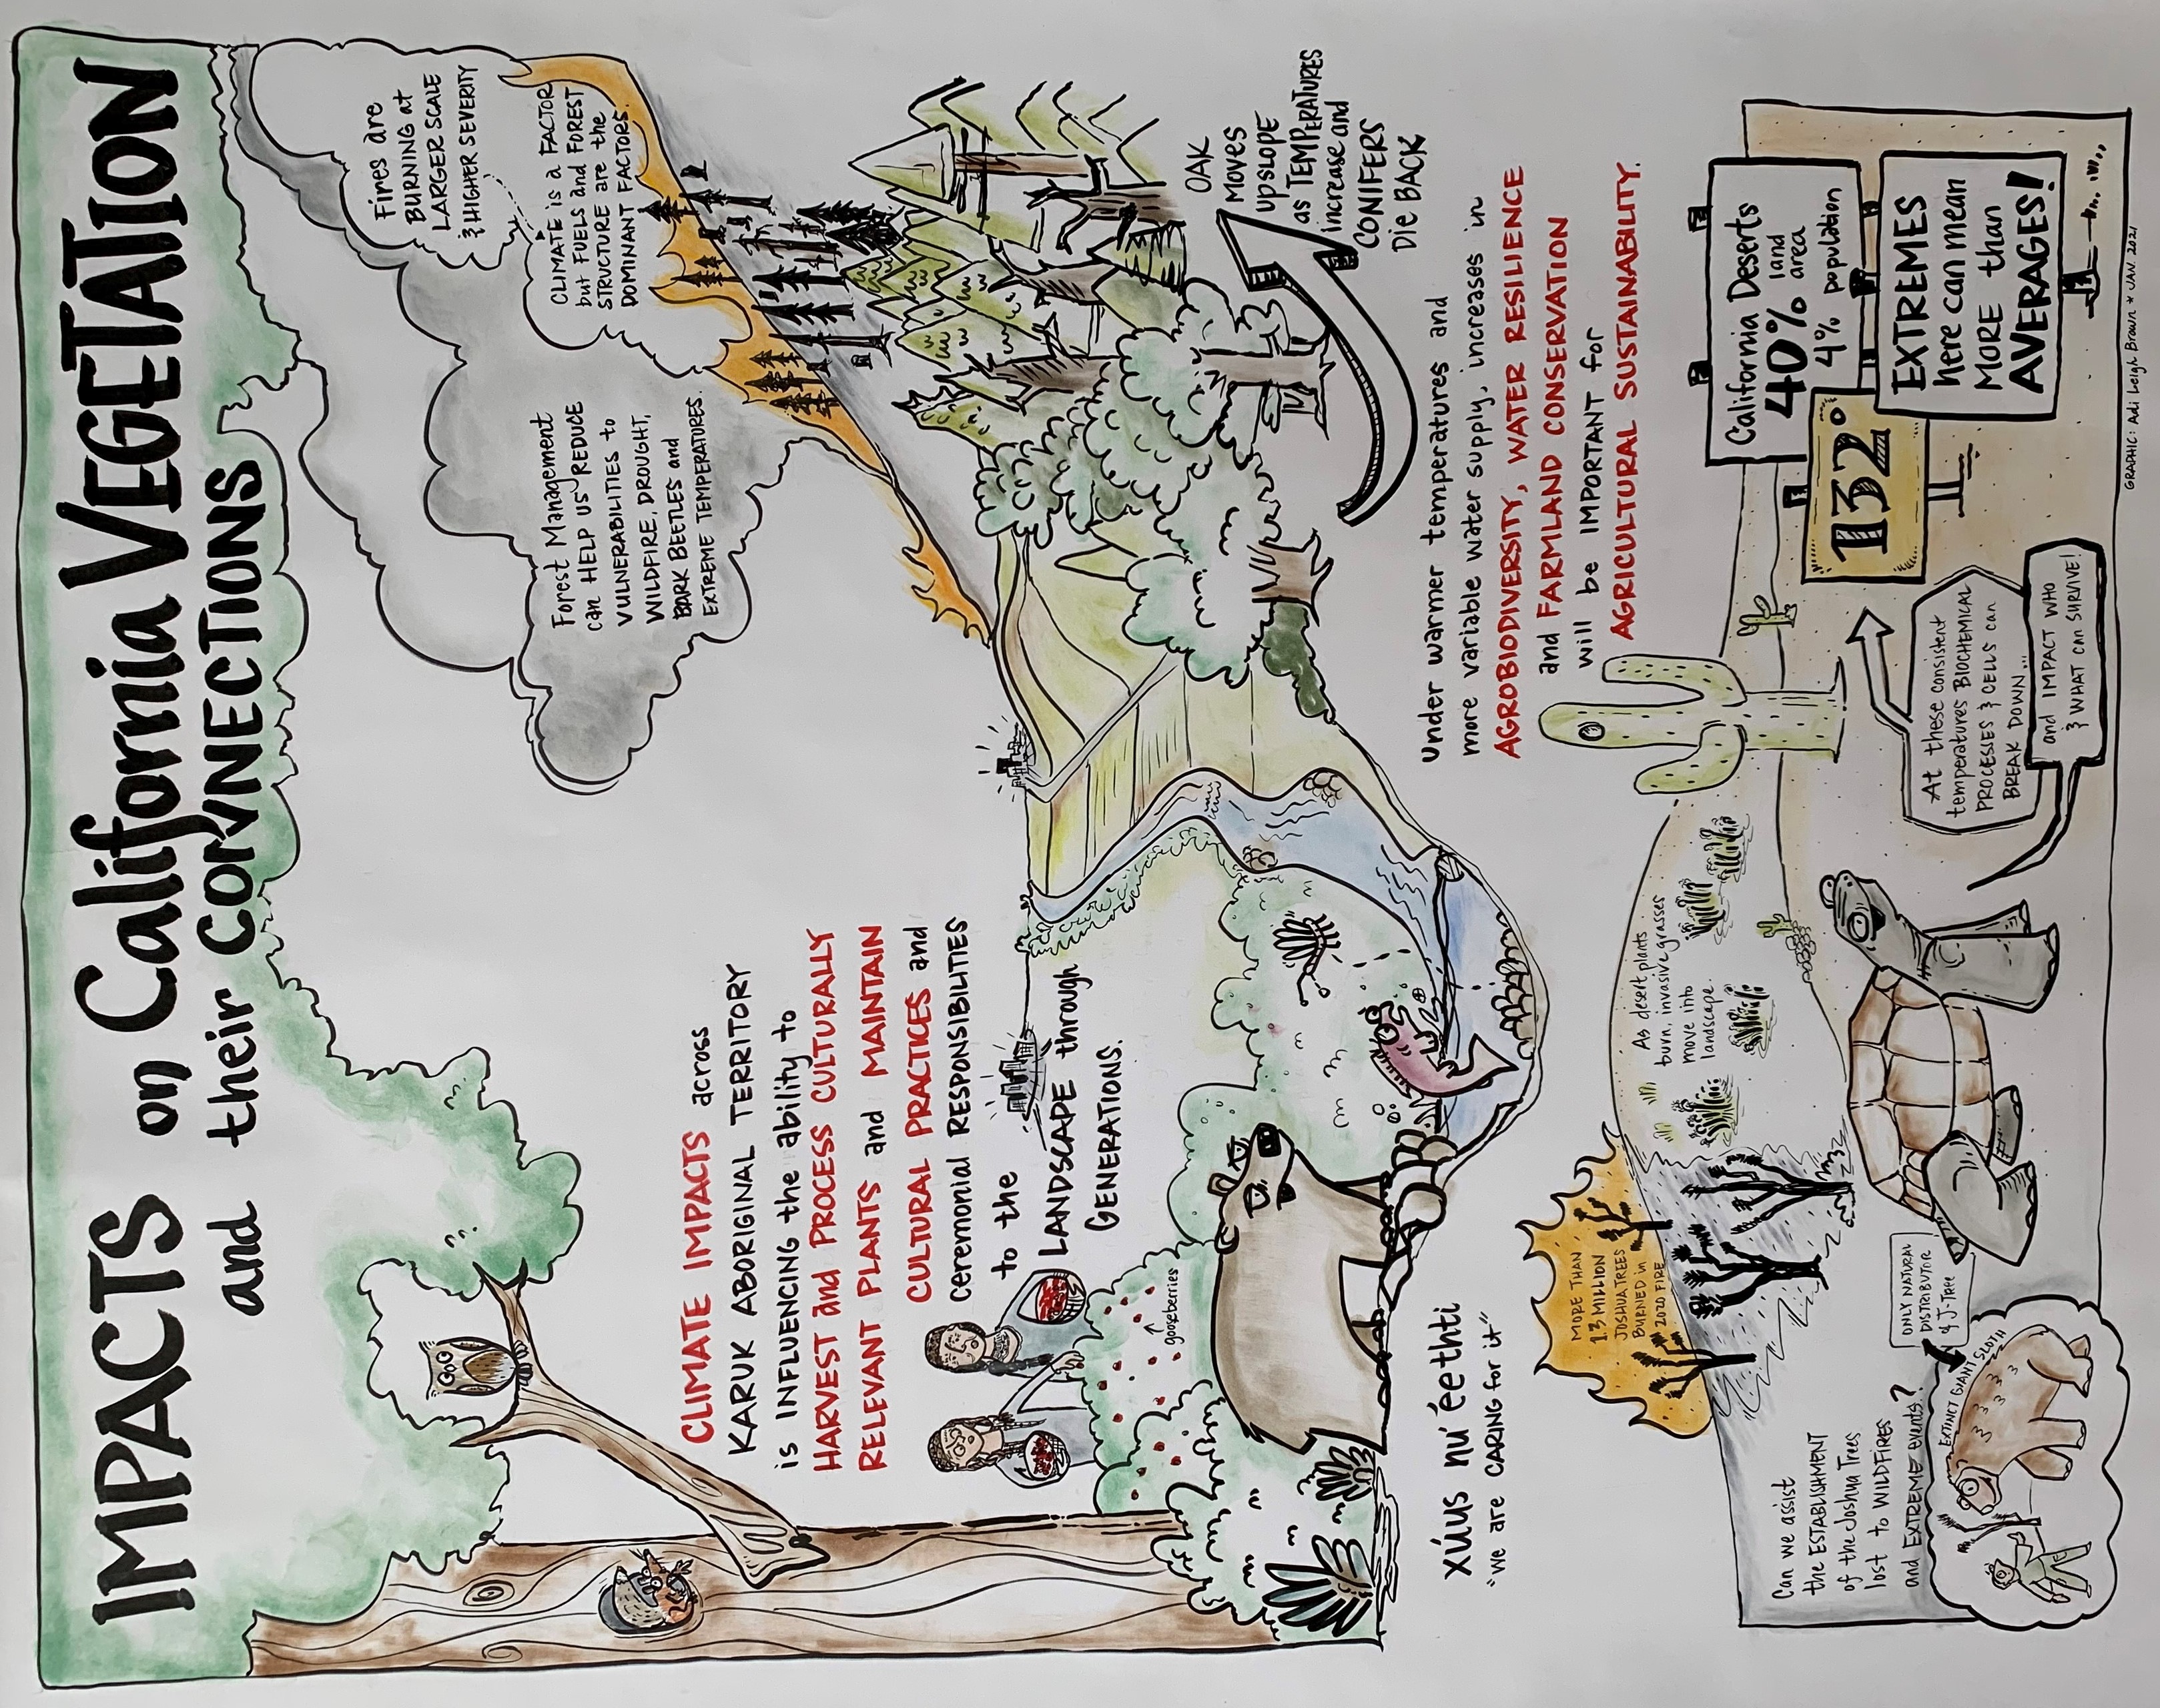 IMPACTS on California VEGETATION
and their CONNECTIONS
Fires are
BURNING at
LARGER SCALE
& HIGHER SEVERITY
CLIMATE is a FACTOR
but FUELS and FOREST
STRUCTURE are the
DOMINANT FACTORS.
Forest Management
can HELP US REDUCE
VULNERABILITIES to
WILDFIRE, DROUGHT,
BARK BEETLES and
EXTREME TEMPERATURES.
CLIMATE IMPACTS across
KARUK ABORIGINAL TERRITORY
is INFLUENCING the ability to
HARVEST and PROCESS CULTURALLY
RELEVANT PLANTS and MAINTAIN
CULTURAL PRACTICES and
CEREMONIAL RESPONSIBILITIES
to the
LANDSCAPE through
GENERATIONS.
gooseberries
OAK
MOVES
UPSLOPE
as TEMPERATURES
increase and
CONIFERS
Die BACK
xúus nu'éethti
"we are CARING for it"
Under warmer temperatures and
more variable water supply, increases in
AGROBIODIVERSITY, WATER RESILIENCE
and FARMLAND CONSERVATION
will be IMPORTANT for
AGRICULTURAL SUSTAINABILITY.
MORE THAN
1.3 MILLION
JOSHUA TREES
BURNED in
2020 FIRE
As desert plants
burn, invasive grasses
move into
landscape.
California Deserts
40% land
area
4% population
132°
EXTREMES
here can mean
MORE than
AVERAGES!
At these consistent
temperatures BIOCHEMICAL
PROCESSES & CELLS can
BREAK DOWN...
and IMPACT WHO
& WHAT can SURVIVE!
Can we assist
the ESTABLISHMENT
of the Joshua Trees
lost to WILDFIRES
and EXTREME events?
ONLY NATURAL
DISTRIBUTOR
of J-Tree
EXTINCT GIANT SLOTH
GRAPHIC: Adi Leigh Brown * JAN. 2021